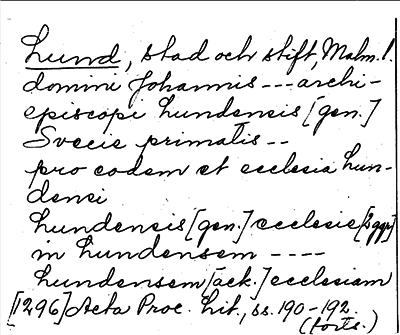 Lund, stad och stift, Malm. l.
domini Johannis --- archi-
episcopi Lundensis [gen.]
Svecie primatis --
pro eodem et ecclesia Lun-
densi
Lundensis [gen.] ecclesie [2 ggr]
in Lundensem ----
Lundensem [ack.] ecclesiam
[1296] Acta Proc. Lit., ss. 190-192
(forts.)